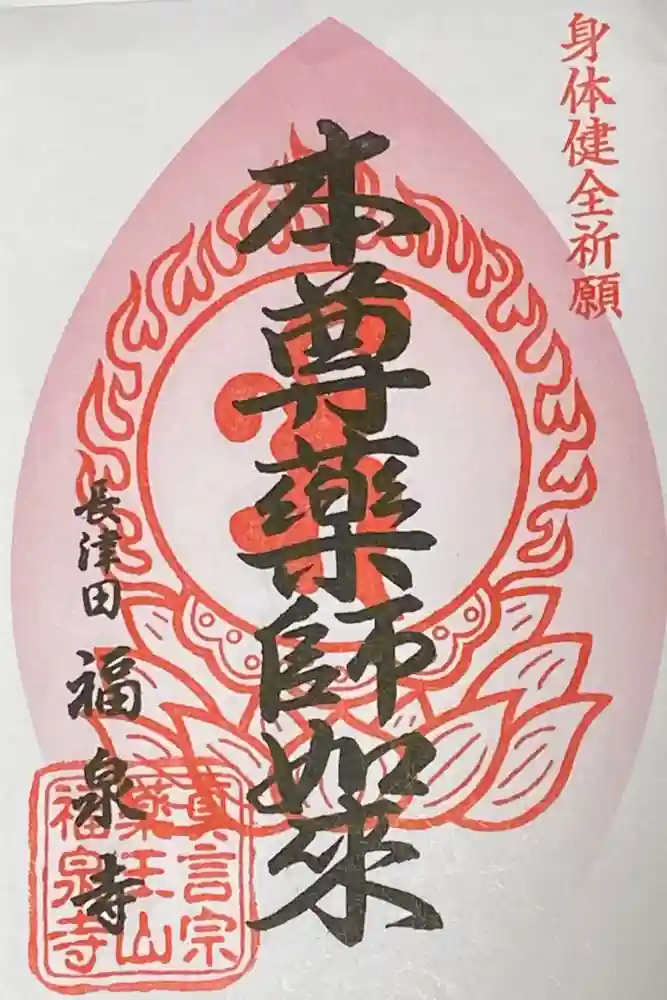 身体健全祈願
本尊薬師如来
長津田
福泉寺
真言宗
薬王山
福泉寺